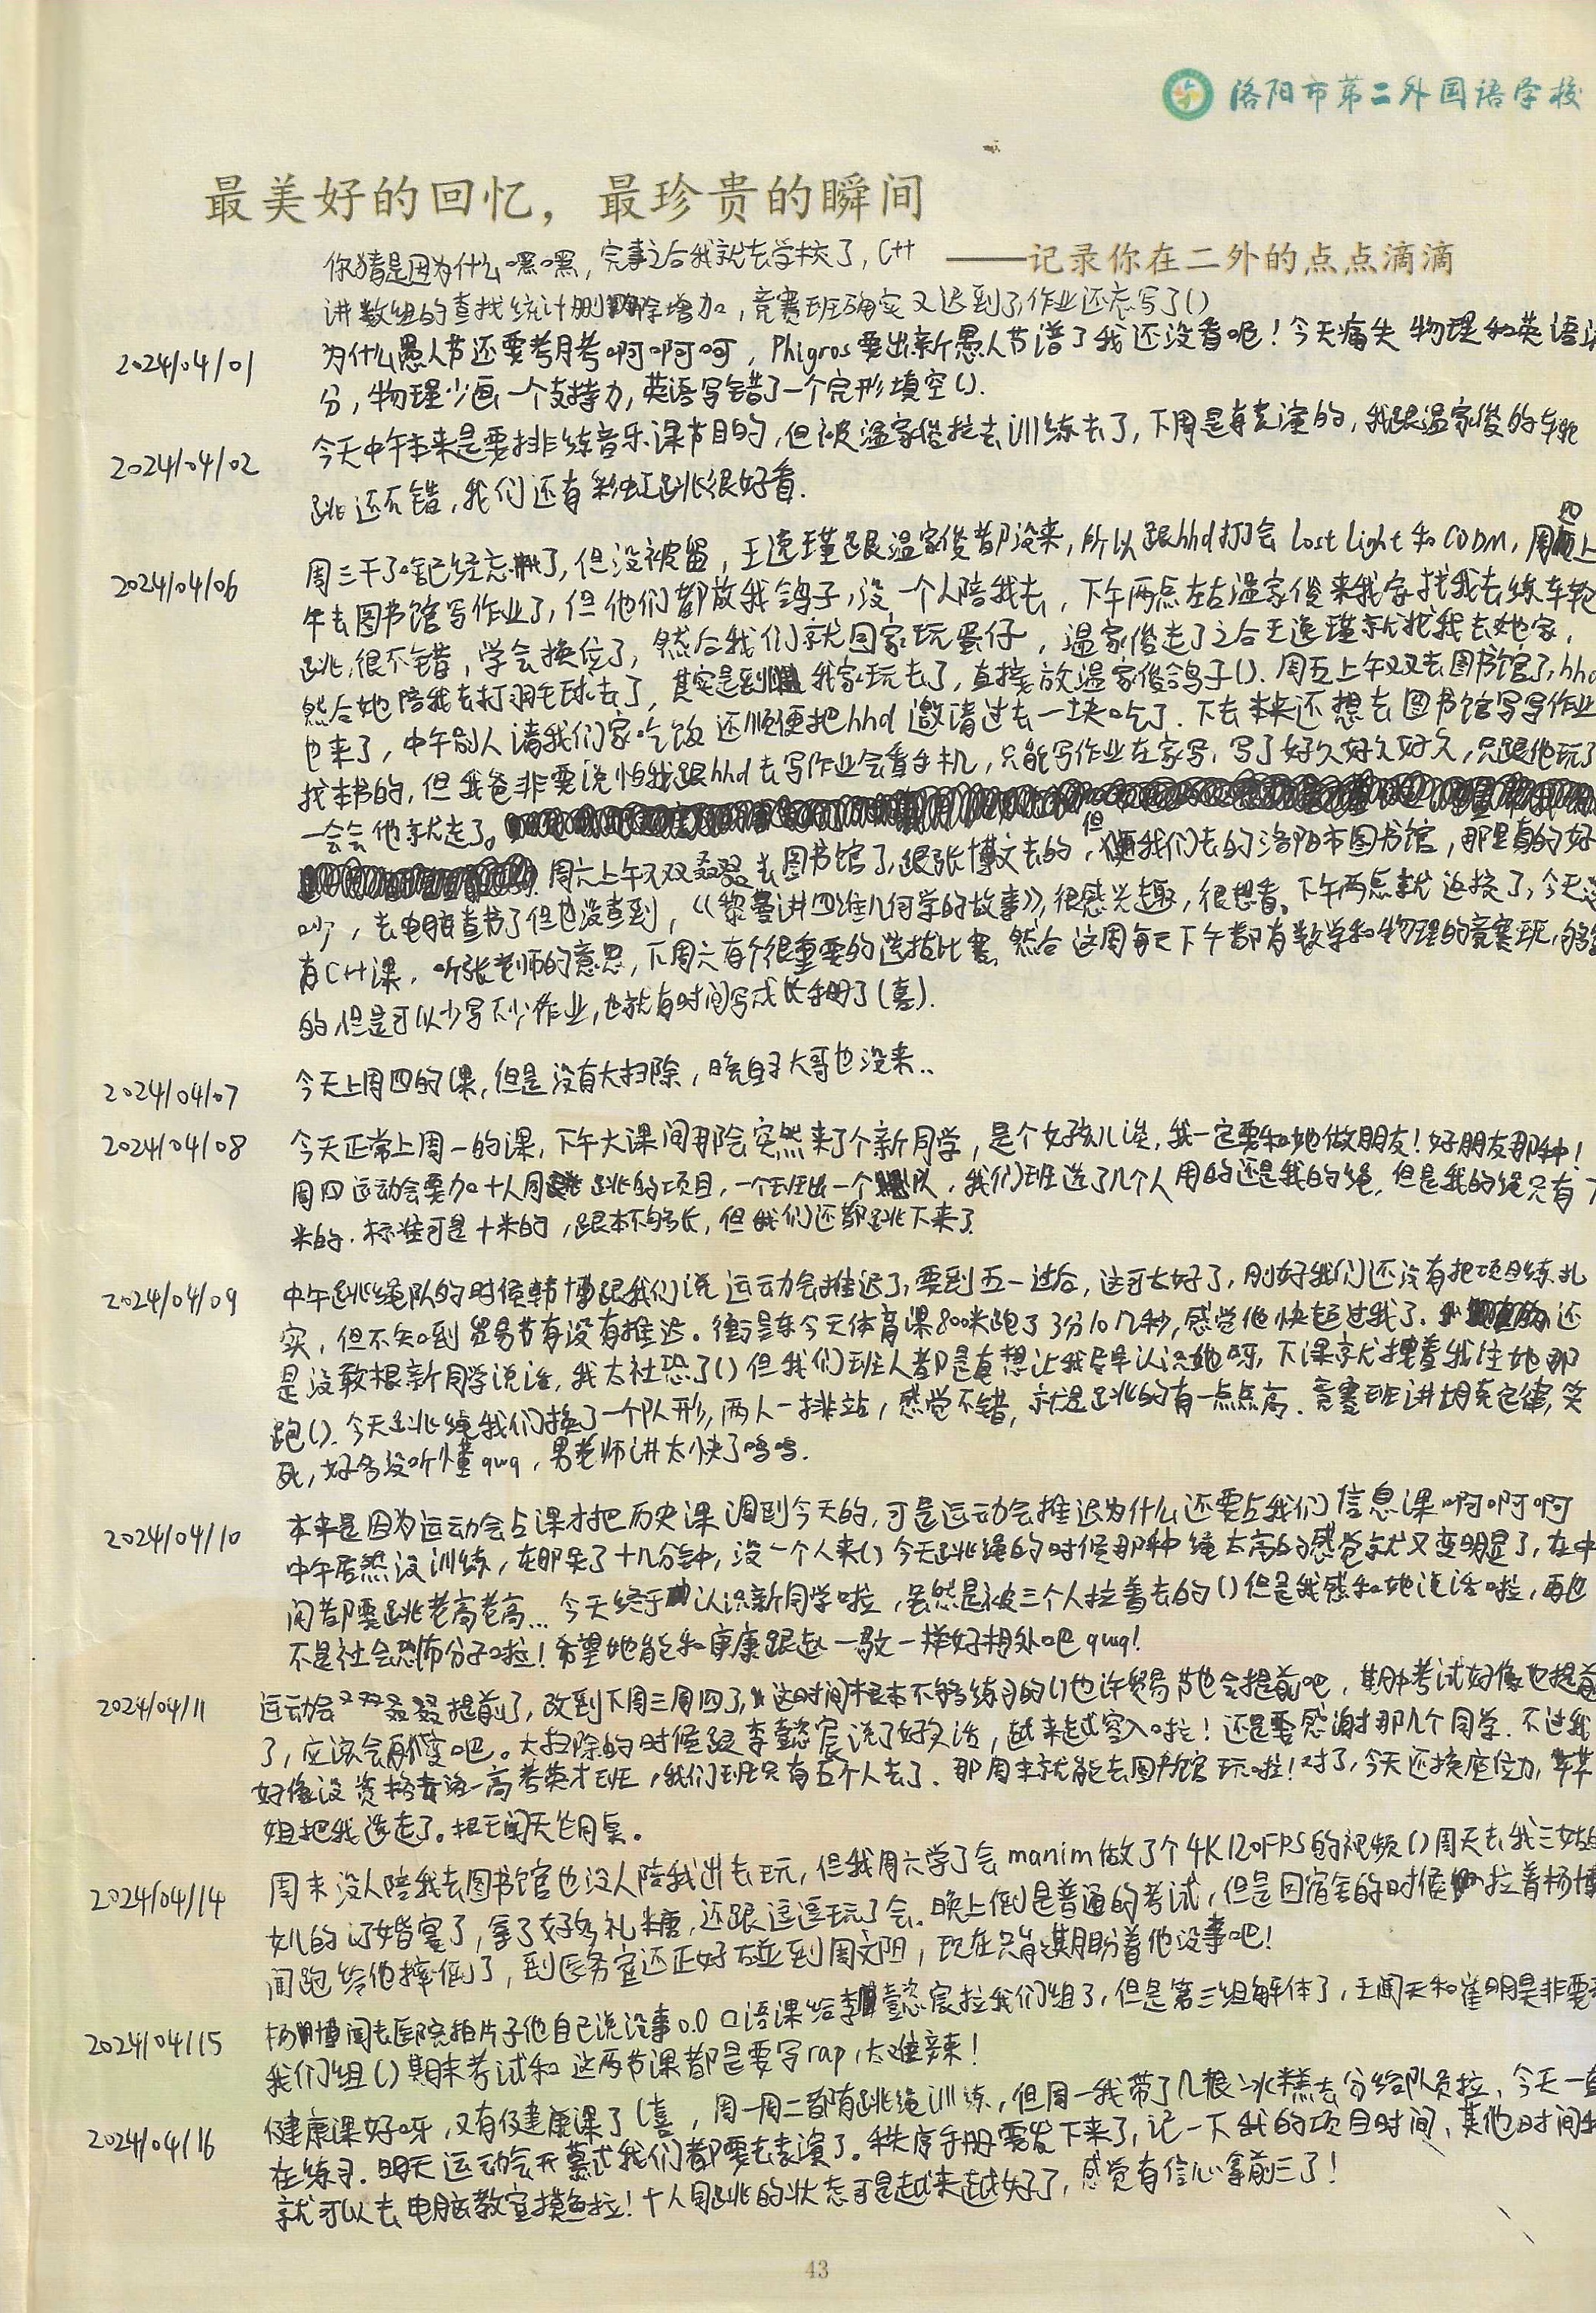 洛阳市第二外国语学校
最美好的回忆，最珍贵的瞬间
——记录你在二外的点点滴滴
你猜是因为什么嘿嘿，完事之后我就去学校了，C++
讲数组的查找统计删除增加，竞赛班确实又迟到了，作业还忘写了()
2024/04/01 为什么愚人节还要考月考啊啊啊，Phigros要出新愚人节谱了我还没看呢！今天痛失物理和英语
分，物理少画一个支持力，英语写错了一个完形填空().
2024/04/02 今天中午本来是要排练音乐课节目的，但被温家俊拉去训练去了，下周是有表演的，我跟温家俊的车轮
跳还不错，我们还有彩虹跳很好看.
2024/04/06 周三干了啥已经忘了，但没被留，王逸瑾跟温家俊都没来，所以跟hhd打了会Lost Light和CODM，周四上
午去图书馆写作业了，但他们都放我鸽子，没一个人陪我去，下午两点左右温家俊来我家找我去练车轮
跳，很不错，学会换位了，然后我们就回家玩蛋仔，温家俊走了之后王逸瑾就把我去她家，
然后她陪我去打羽毛球去了，其实是到我家玩去了，直接放温家俊鸽子().周五上午又又去图书馆了，hhd
也来了，中午别人请我们家吃饭还顺便把hhd邀请过去一块吃了.下去本来还想去图书馆写写作业
找本书的，但我爸非要说怕我跟hhd去写作业会看手机，只能写作业在家写，写了好久好久好久，只跟他玩了
一会会他就走了。
周六上午又双叒叕去图书馆了，跟张博文去的，但我们去的洛阳市图书馆，那里真的好
吵，去电脑查书了但也没查到，《黎曼讲四维几何学的故事》，很感兴趣，很想看。下午两点就返校了，今天还
有C++课，听张老师的意思，下周六有个很重要的选拔比赛，然后这周每天下午都有数学和物理的竞赛班，够
的，但是可以少写不少作业，也就有时间写成长手册了(喜).
2024/04/07 今天上周四的课，但是没有大扫除，晚自习大哥也没来..
2024/04/08 今天正常上周一的课，下午大课间那会突然来了个新同学，是个女孩儿诶，我一定要和她做朋友！好朋友那种！
周四运动会要加十人同跳的项目，一个班出一个队，我们班选了几个人用的还是我的绳，但是我的绳只有7
米的.标准可是十米的，跟本不够长，但我们还都跳下来了.
2024/04/09 中午跳绳队的时候韩博跟我们说运动会推迟了，要到五一过后，这可太好了，刚好我们还没有把项目练扎
实，但不知到贸易节有没有推迟。今天体育课800米跑了3分10几秒，感觉他快超过我了.还
是没敢根新同学说话，我太社恐了()但我们班人都是真想让我尽早认识她呀，下课就拽着我往她那
跑().今天跳绳我们换了一个队形，两人一排站，感觉不错，就是跳的有一点点高.竞赛班讲胡克定律，笑
死，好多没听懂qwq，男老师讲太快了呜呜.
2024/04/10 本来是因为运动会占课才把历史课调到今天的，可是运动会推迟为什么还要占我们信息课啊啊啊
中午居然没训练，在那呆了十几分钟，没一个人来()今天跳绳的时候那种绳太高的感觉就又变明显了，在中
间都要跳老高老高...今天终于认识新同学啦，虽然是被三个人拉着去的()但是我感和她说话啦，再也
不是社会恐怖分子啦！希望她能和康跟赵一样好相处吧qwq！
2024/04/11 运动会又双叒叕提前了，改到下周三周四了，这时间根本不够练习的()也许贸易节也会提前吧，期中考试好像也提前
了，应该会再变吧。大扫除的时候跟李懿宸说了好久话，越来越深入啦！还是要感谢那几个同学.不过我
好像没资格去洛一高考英才班，我们班只有五个人去了.那周末就能去图书馆玩啦！对了，今天还换座位力，
姐把我选走了。把王闻天作同桌。
2024/04/14 周末没人陪我去图书馆也没人陪我出去玩，但我周六学了会manim做了个4K120FPS的视频()周天去我三姑的
女儿的订婚宴了，拿了好多礼糖，还跟逗逗玩了会.晚上倒是普通的考试，但是回宿舍的时候拉着杨博
闻跑给他摔倒了，到医务室还正好碰到周文阳，现在只能期盼着他没事吧！
2024/04/15 杨博闻去医院拍片子他自己说没事0.0口语课给李懿宸拉我们组了，但是第三组解体了，王闻天和崔明昊非要
我们组()期末考试和这两节课都是要写rap，太难辣！
2024/04/16 健康课好呀，又有健康课了(喜，周一周二都有跳绳训练，但周一我带了几根冰糕去分给队员拉，今天一直
在练习.明天运动会开幕式我们都要去表演了。秩序手册发下来了，记一下我的项目时间，其他时间我
就可以去电脑教室摸鱼拉！十人同跳的状态可是越来越好了，感觉有信心拿前三了！
43